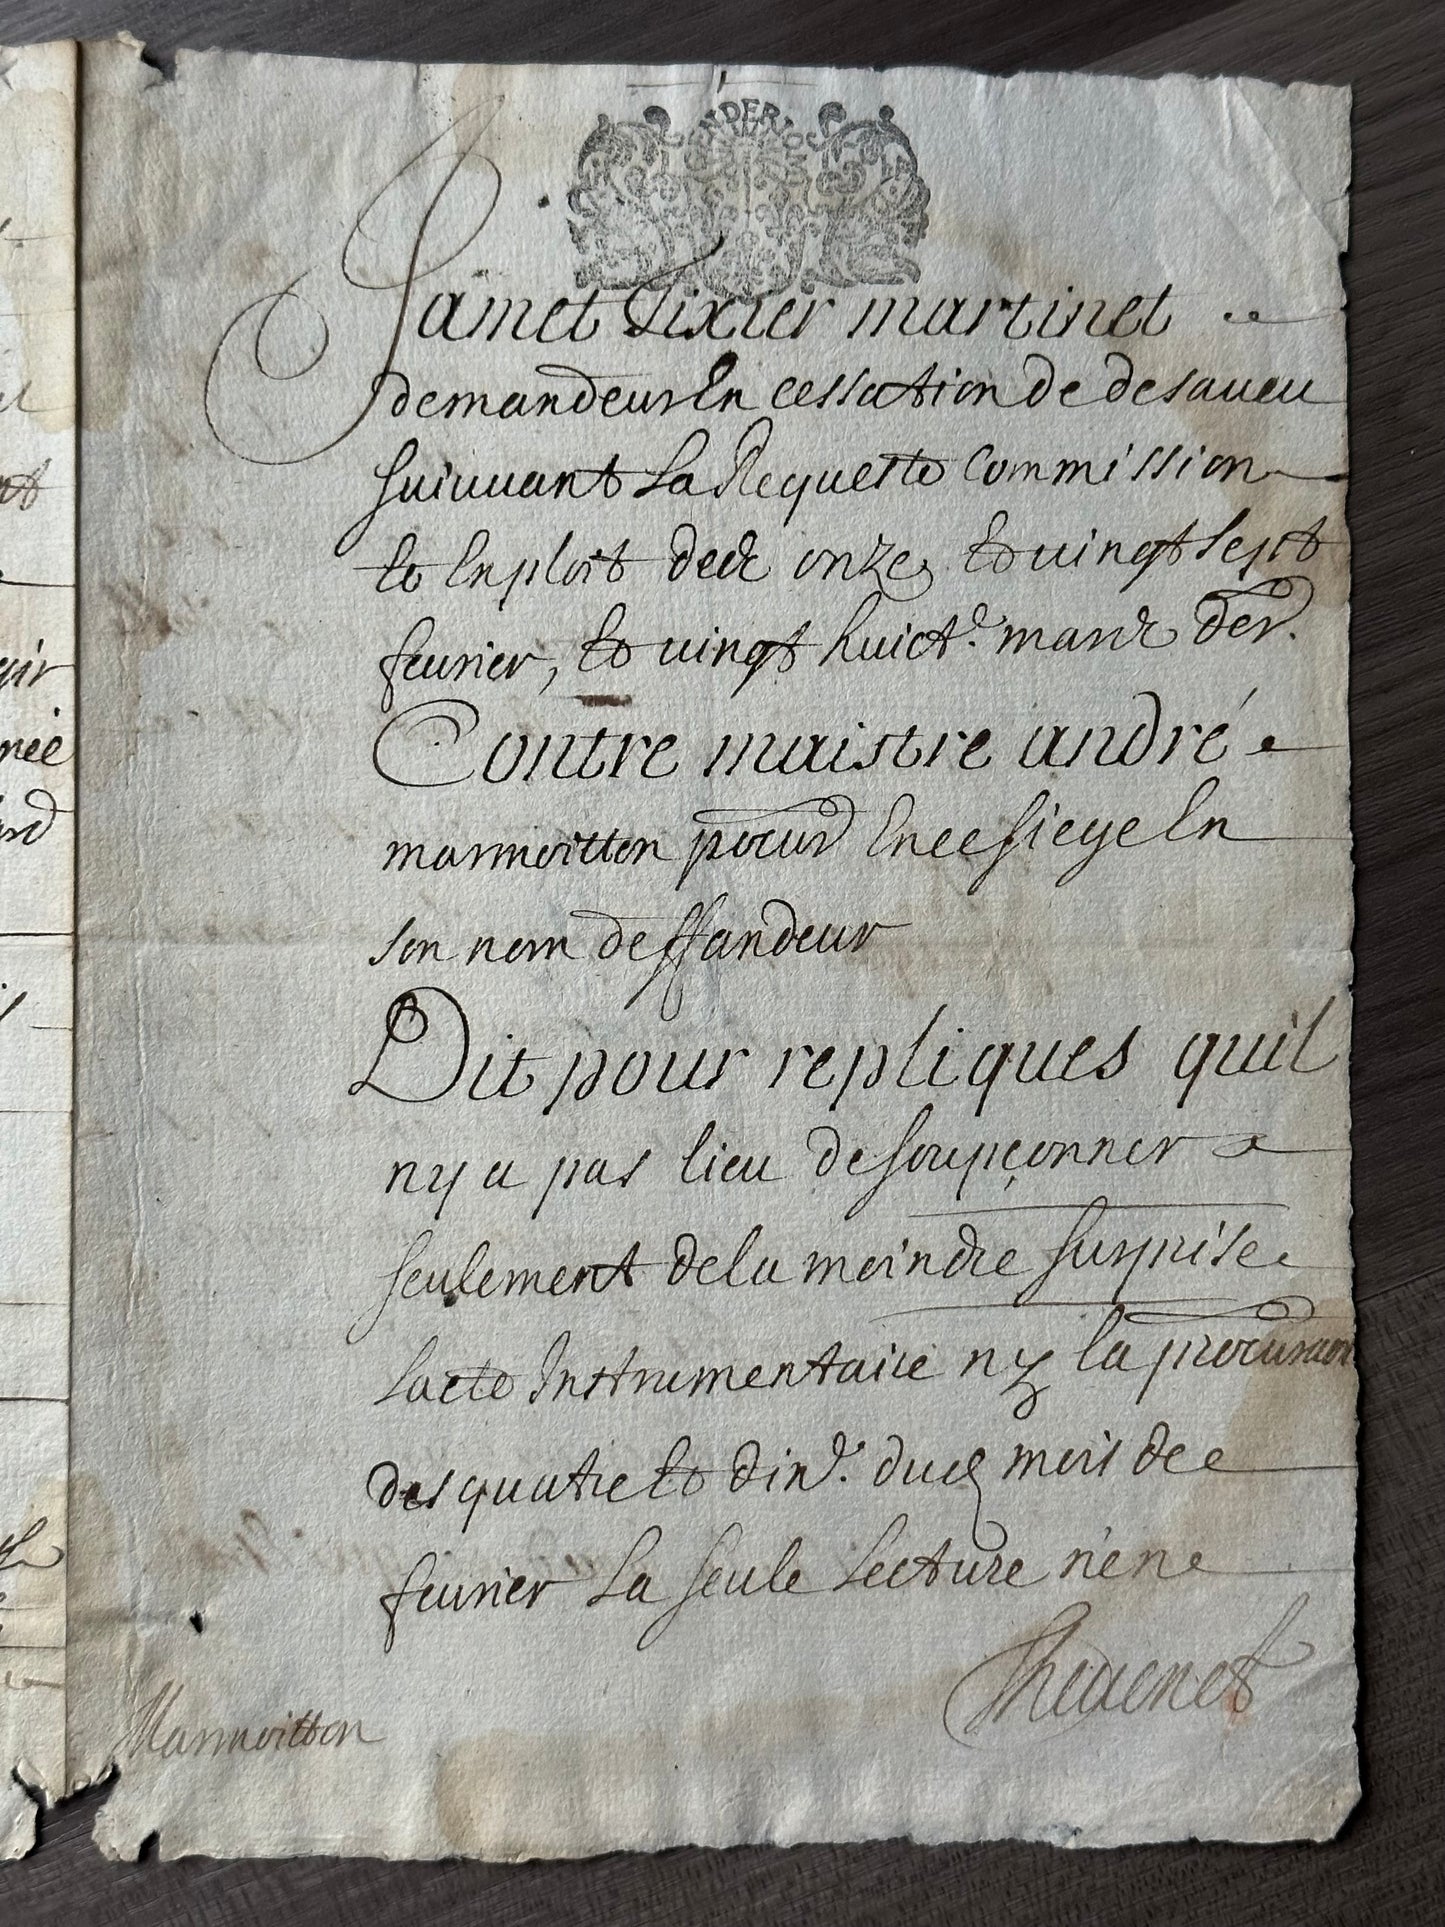 GENDERIOM
Jamet Tixier martinet
demandeur En cessation de desaueu
suiuuant La Requeste Commission
Et Exploit de onze Et uingt sept
feurier, Et uingt huict.e mars der.
Contre maistre andré
marmoitton procur En ce siege En
son nom deffandeur
Dit pour repliques quil
ny a pas lieu de soupçonner
seulement de la moindre surprise
Lacte Instrumentaire ny la procuraon
des quatre Et dix.e dud mois de
feurier La seule Lecture n'en
Marmoitton
Theuenet